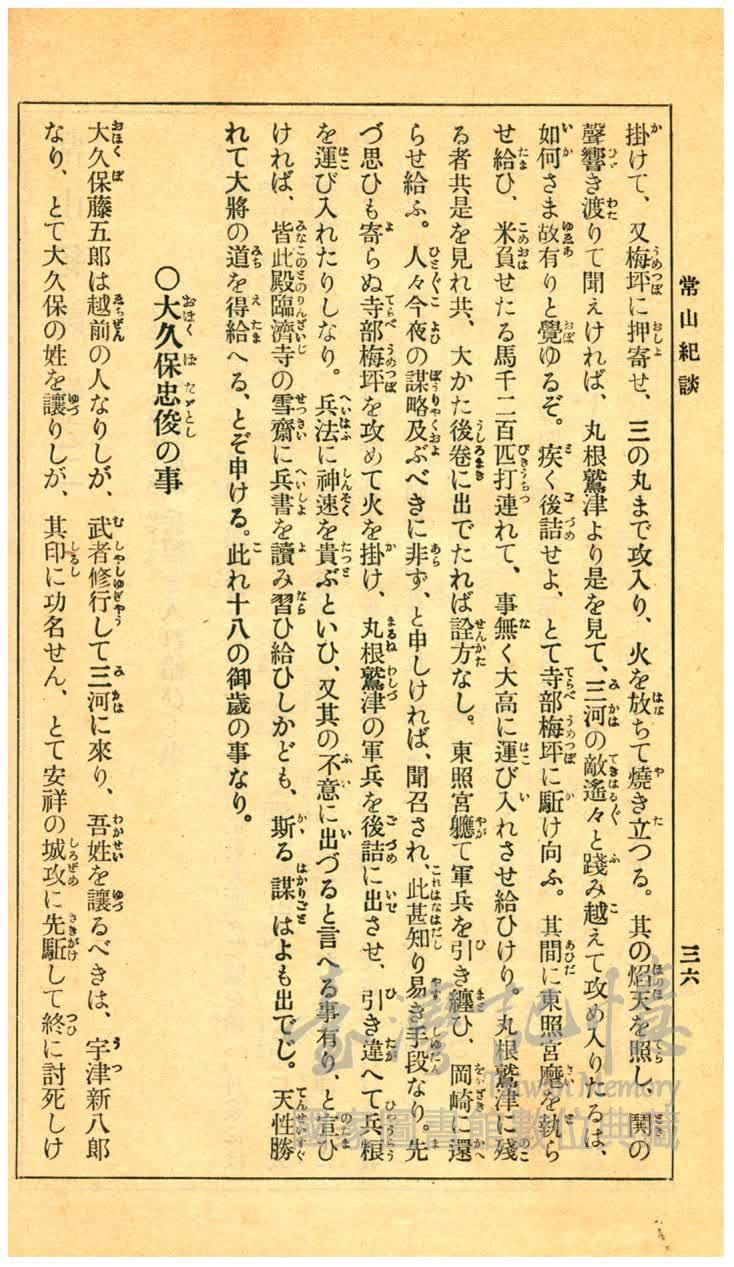 常山紀談
三六
掛けて、又梅坪に押寄せ、三の丸まで攻入り、火を放ちて燒き立つる。其の焰天を照し、鬨の
聲響き渡りて聞えければ、丸根鷲津より是を見て、三河の敵遙々と踐み越えて攻め入りたるは、
如何さま故有りと覺ゆるぞ。疾く後詰せよ、とて寺部梅坪に駈け向ふ。其間に東照宮麾を執ら
せ給ひ、米負せたる馬千二百匹打連れて、事無く大高に運び入れさせ給ひけり。丸根鷲津に殘
る者共是を見れ共、大かた後卷に出でたれば詮方なし。東照宮軈て軍兵を引き纏ひ、岡崎に還
らせ給ふ。人々今夜の謀略及ぶべきに非ず、と申しければ、聞召され、此甚知り易き手段なり。先
づ思ひも寄らぬ寺部梅坪を攻めて火を掛け、丸根鷲津の軍兵を後詰に出させ、引き違へて兵粮
を運び入れたりしなり。兵法に神速を貴ぶといひ、又其の不意に出づると言へる事有り、と宣ひ
ければ、皆此殿臨濟寺の雪齋に兵書を讀み習ひ給ひしかども、斯る謀はよも出でじ。天性勝
れて大將の道を得給へる、とぞ申ける。此れ十八の御歲の事なり。
○大久保忠俊の事
大久保藤五郎は越前の人なりしが、武者修行して三河に來り、吾姓を讓るべきは、宇津新八郎
なり、とて大久保の姓を讓りしが、其印に功名せん、とて安祥の城攻に先駈して終に討死しけ
臺灣記憶
Taiwan Memory
國家圖書館數位典藏